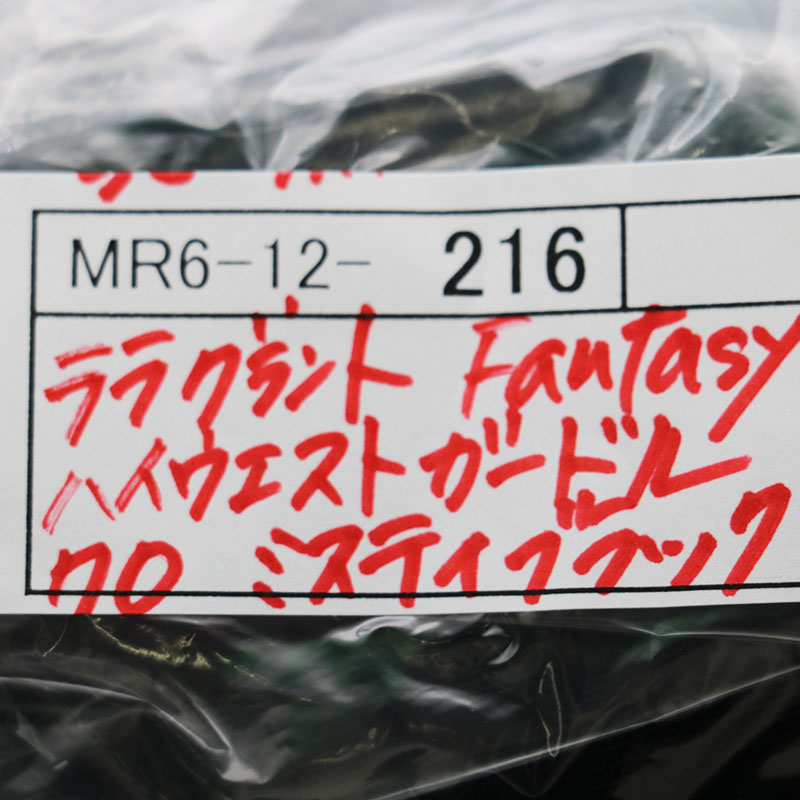 MR6-12- 216
ララクラント Fantasy
ハイウエストガードル
70 ミスティブラック